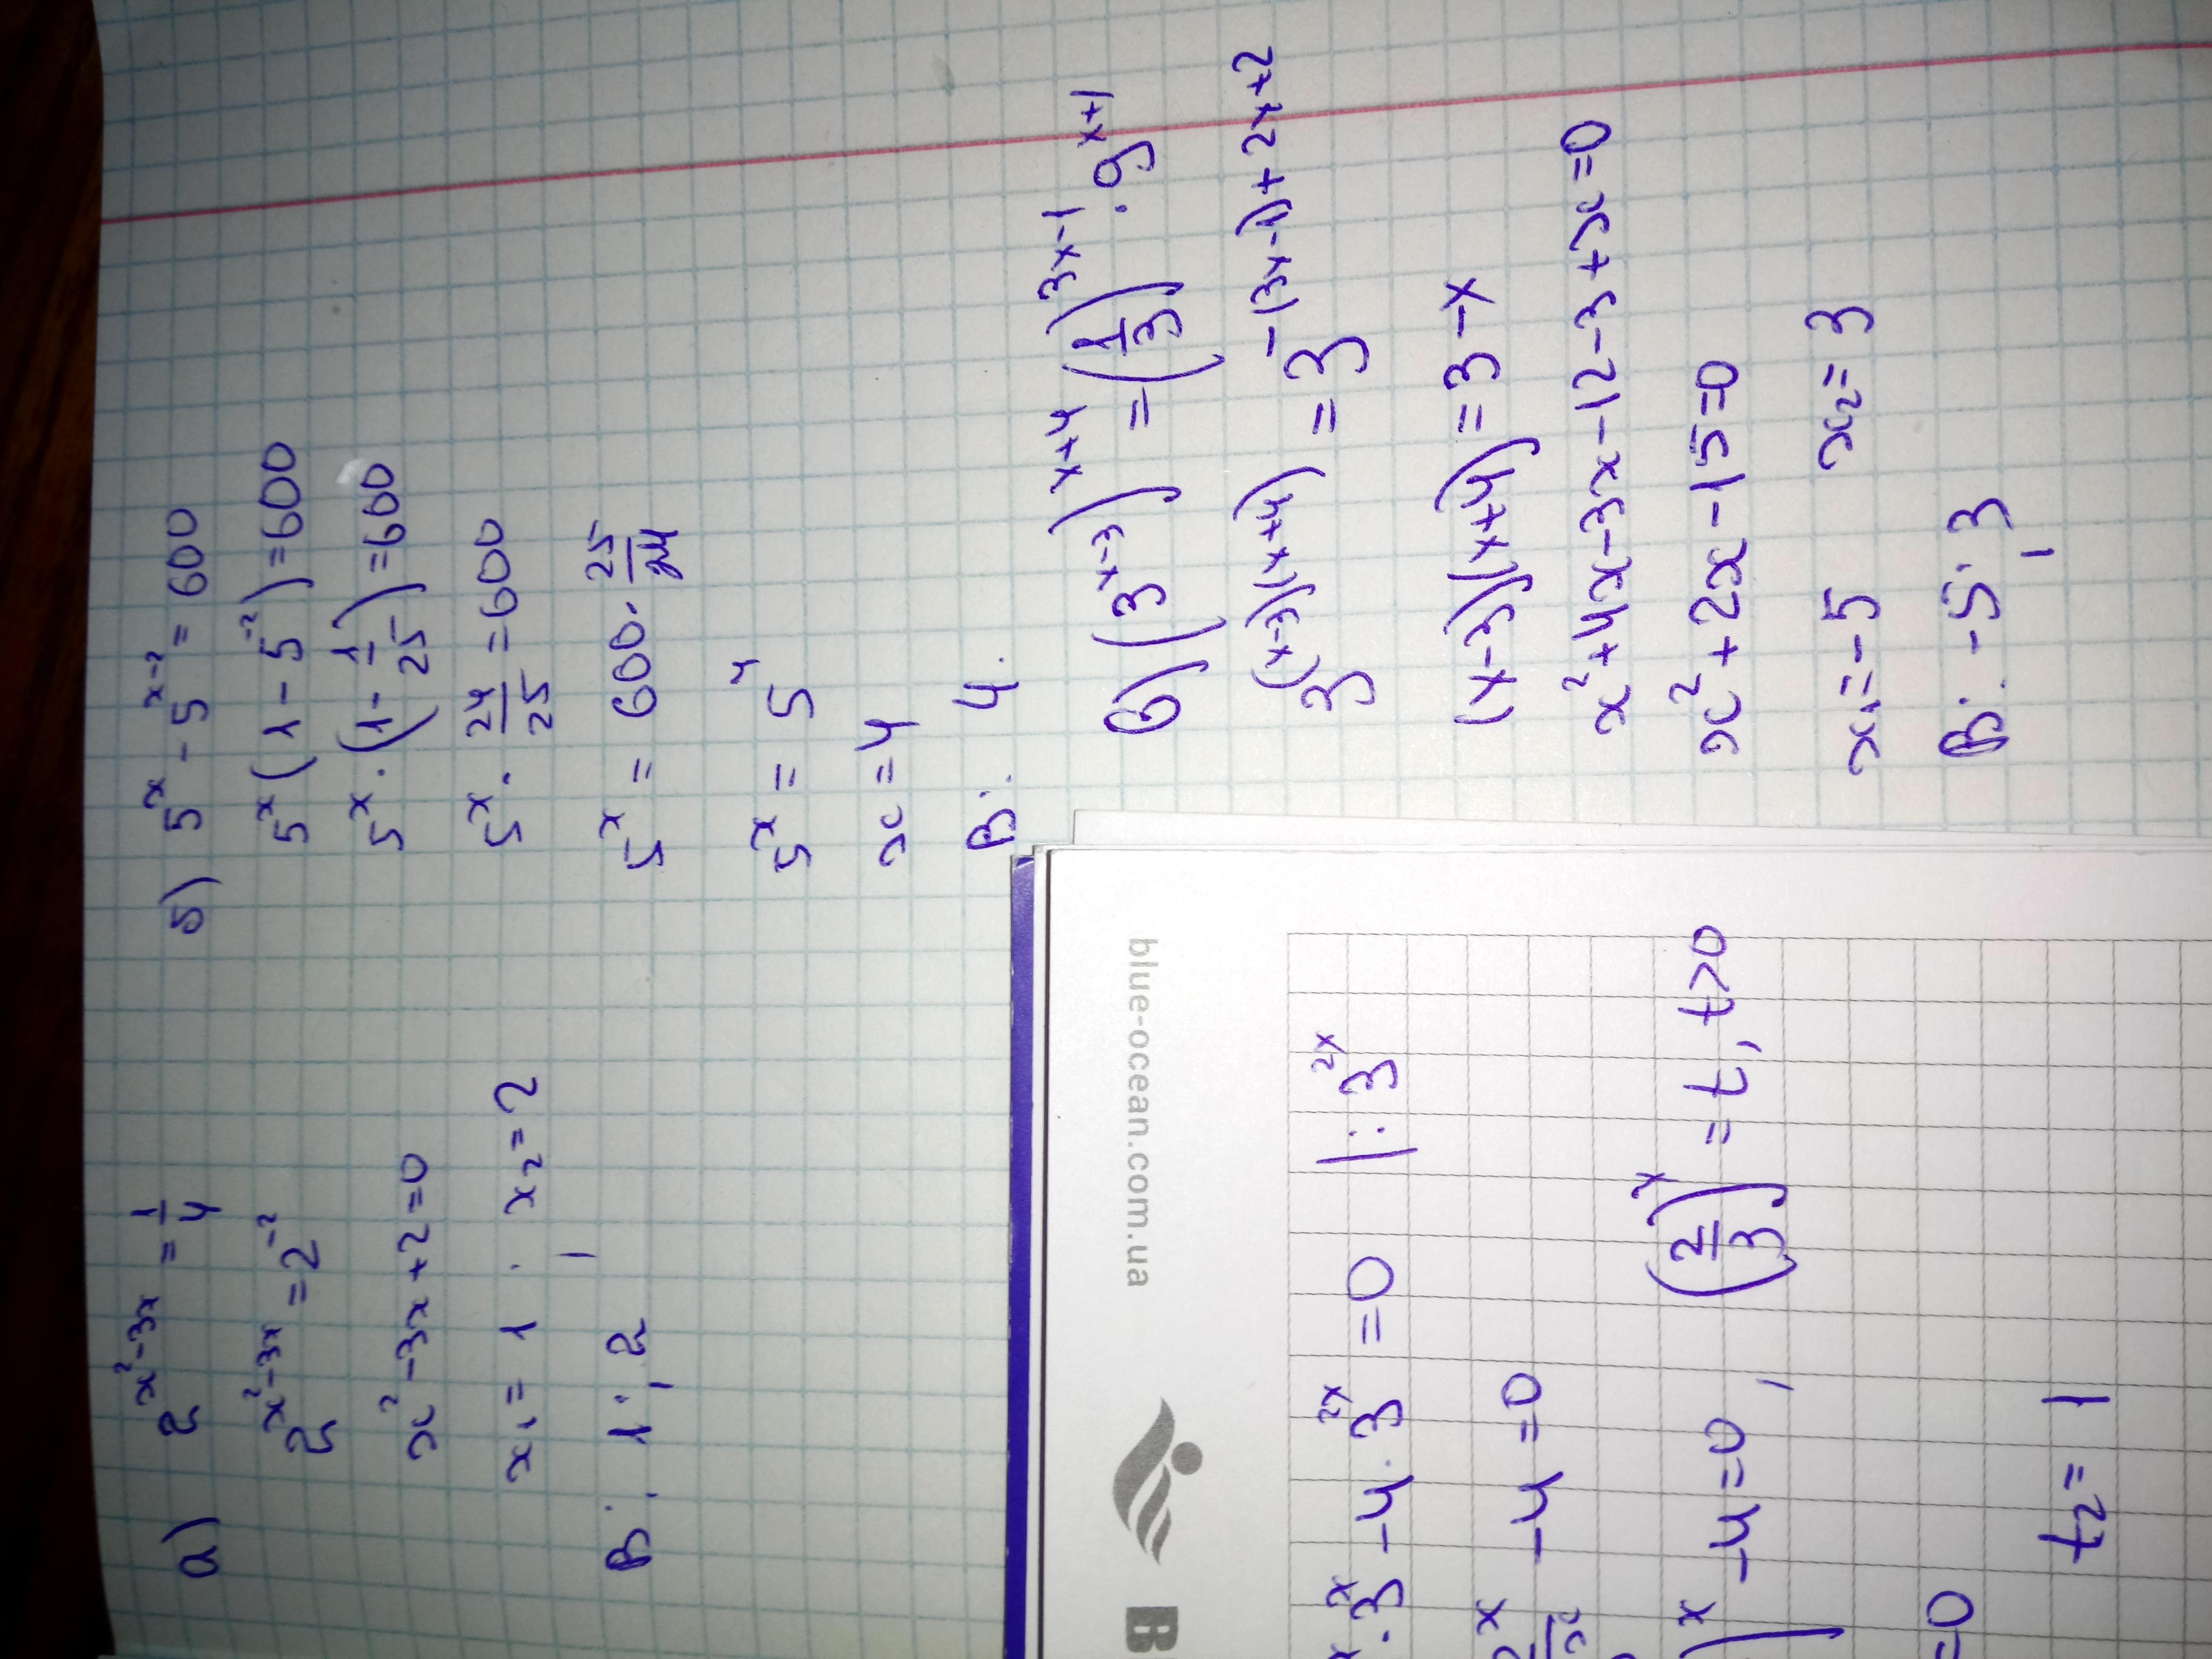 а) 2^{x²-3x} = 1/4
2^{x²-3x} = 2^{-2}
x²-3x+2=0
x₁=1; x₂=2
В: 1; 2
б) 5^x - 5^{x-2} = 600
5^x(1-5^{-2})=600
5^x·(1-1/25)=600
5^x·24/25=600
5^x = 600·25/24
5^x = 5^4
x=4
В: 4.
в) (3^{x-3})^{x+4} = (1/3)^{3x-1}·9^{x+1}
3^{(x-3)(x+4)} = 3^{-(3x-1)+2x+2}
(x-3)(x+4)=3-x
x²+4x-3x-12-3+x=0
x²+2x-15=0
x₁=-5 x₂=3
В: -5; 3
blue-ocean.com.ua
·3^x-4·3^{2x}=0 |:3^{2x}
-4=0
-4=0, (2/3)^x=t, t>0
=0
t₂=1